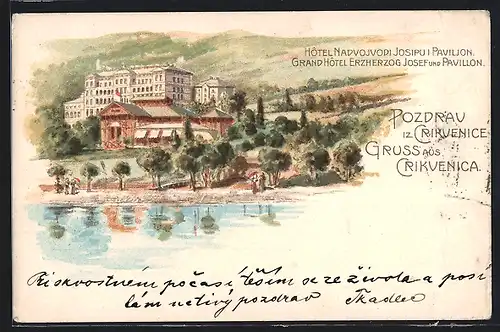 HÔTEL NADVOJVODI JOSIPU I PAVILJON.
GRAND HÔTEL ERZHERZOG JOSEF UND PAVILLON.
POZDRAV
IZ CRIKVENICE
GRUSS AUS
CRIKVENICA.
Při skvostném počasí těším se ze života a posí
lám uctivý pozdrav Tkadlec